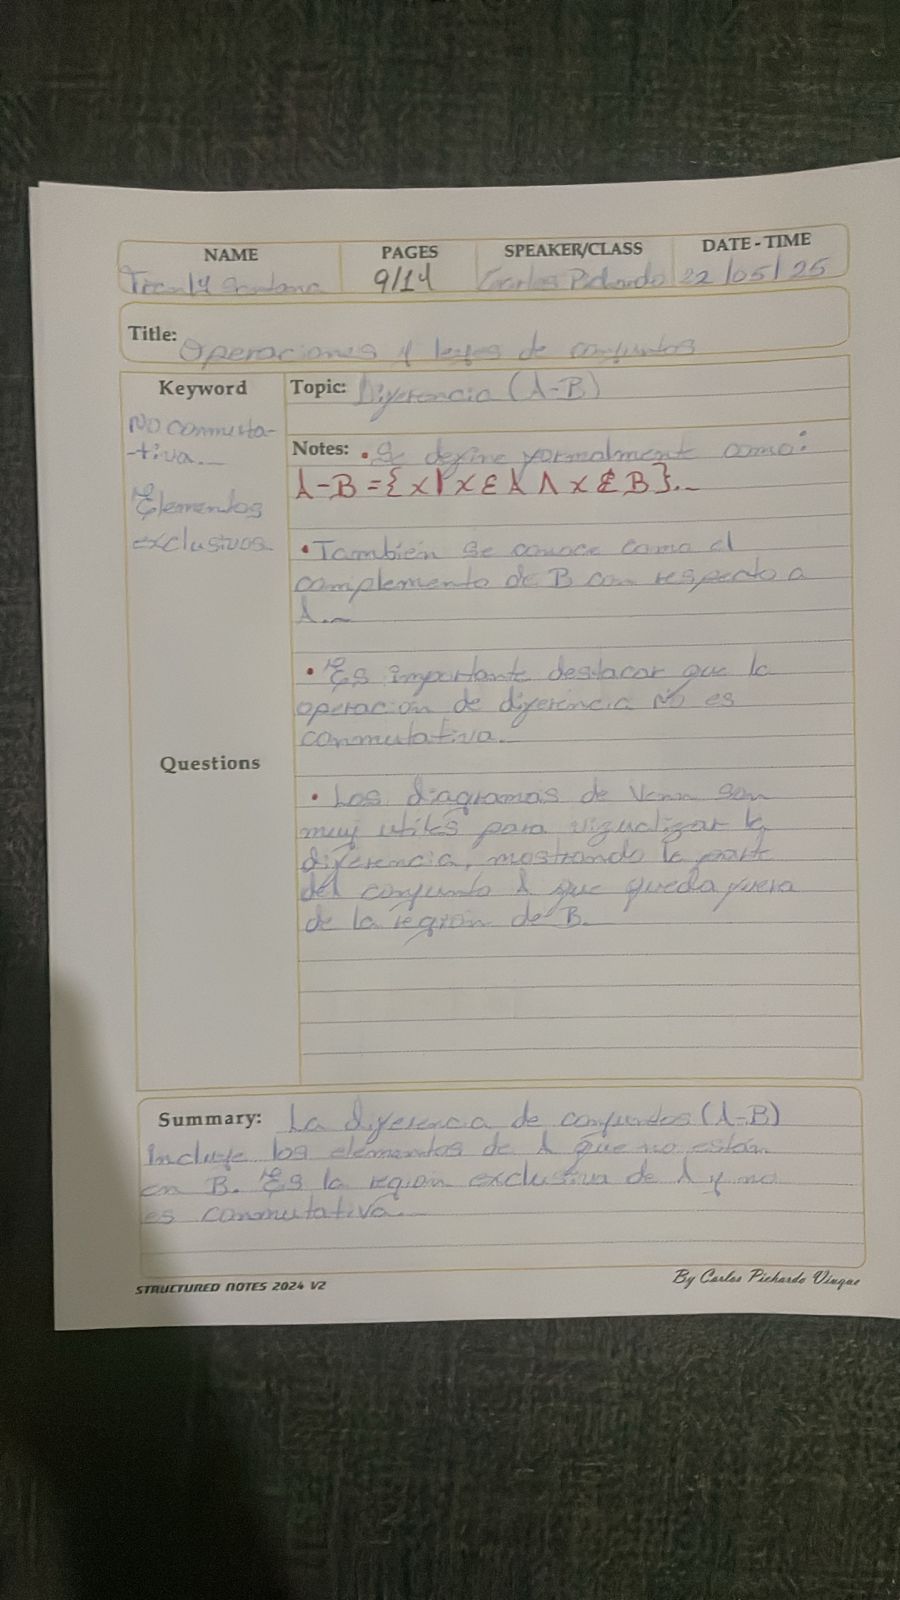 NAME PAGES SPEAKER/CLASS DATE - TIME
Santana 9/14 Carlos Pichardo 22/05/25
Title: Operaciones y leyes de conjuntos
Keyword
No conmuta-
-tiva.
Elementos
exclusivos.
Questions
Topic: Diferencia (A-B)
Notes: • Se define formalmente como:
A-B = {x | x ∈ A ∧ x ∉ B}.
• También se conoce como el
complemento de B con respecto a
A.
• Es importante destacar que la
operación de diferencia No es
conmutativa.
• Los diagramas de Venn son
muy utiles para vizualizar la
diferencia, mostrando la parte
del conjunto A que queda fuera
de la región de B.
Summary: La diferencia de conjuntos (A-B)
Incluye los elementos de A que no están
en B. Es la region exclusiva de A y no
es conmutativa.
STRUCTURED NOTES 2024 V2 By Carlos Pichardo Viuque